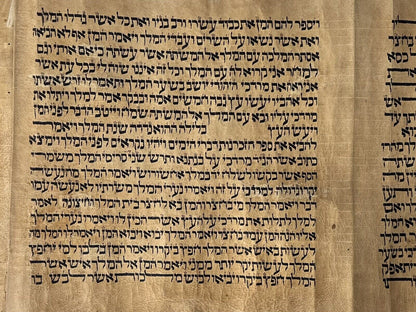 ויספר להם המן את כבוד עשרו ורב בניו ואת כל אשר גדלו המלך
ואת אשר נשאו על השרים ועבדי המלך ויאמר המן אף לא הביאה
אסתר המלכה עם המלך אל המשתה אשר עשתה כי אם אותי וגם
למחר אני קרוא לה עם המלך וכל זה איננו שוה לי בכל עת אשר
אני ראה את מרדכי היהודי יושב בשער המלך ותאמר לו זרש אשתו
וכל אהביו יעשו עץ גבה חמשים אמה ובבקר אמר למלך ויתלו את
מרדכי עליו ובא עם המלך אל המשתה שמח וייטב הדבר לפני המן
ויעש העץ בלילה ההוא נדדה שנת המלך ויאמר
להביא את ספר הזכרנות דברי הימים ויהיו נקראים לפני המלך וימצא
כתוב אשר הגיד מרדכי על בגתנא ותרש שני סריסי המלך משמרי
הסף אשר בקשו לשלח יד במלך אחשורוש ויאמר המלך מה נעשה
יקר וגדולה למרדכי על זה ויאמרו נערי המלך משרתיו לא נעשה עמו
דבר ויאמר המלך מי בחצר והמן בא לחצר בית המלך החיצונה לאמר
למלך לתלות את מרדכי על העץ אשר הכין לו ויאמרו נערי המלך
אליו הנה המן עמד בחצר ויאמר המלך יבוא ויבוא המן ויאמר לו המלך מה
לעשות באיש אשר המלך חפץ ביקרו ויאמר המן בלבו למי יחפץ
המלך לעשות יקר יותר ממני ויאמר המן אל המלך איש אשר
המלך חפץ ביקרו יביאו לבוש מלכות אשר לבש בו